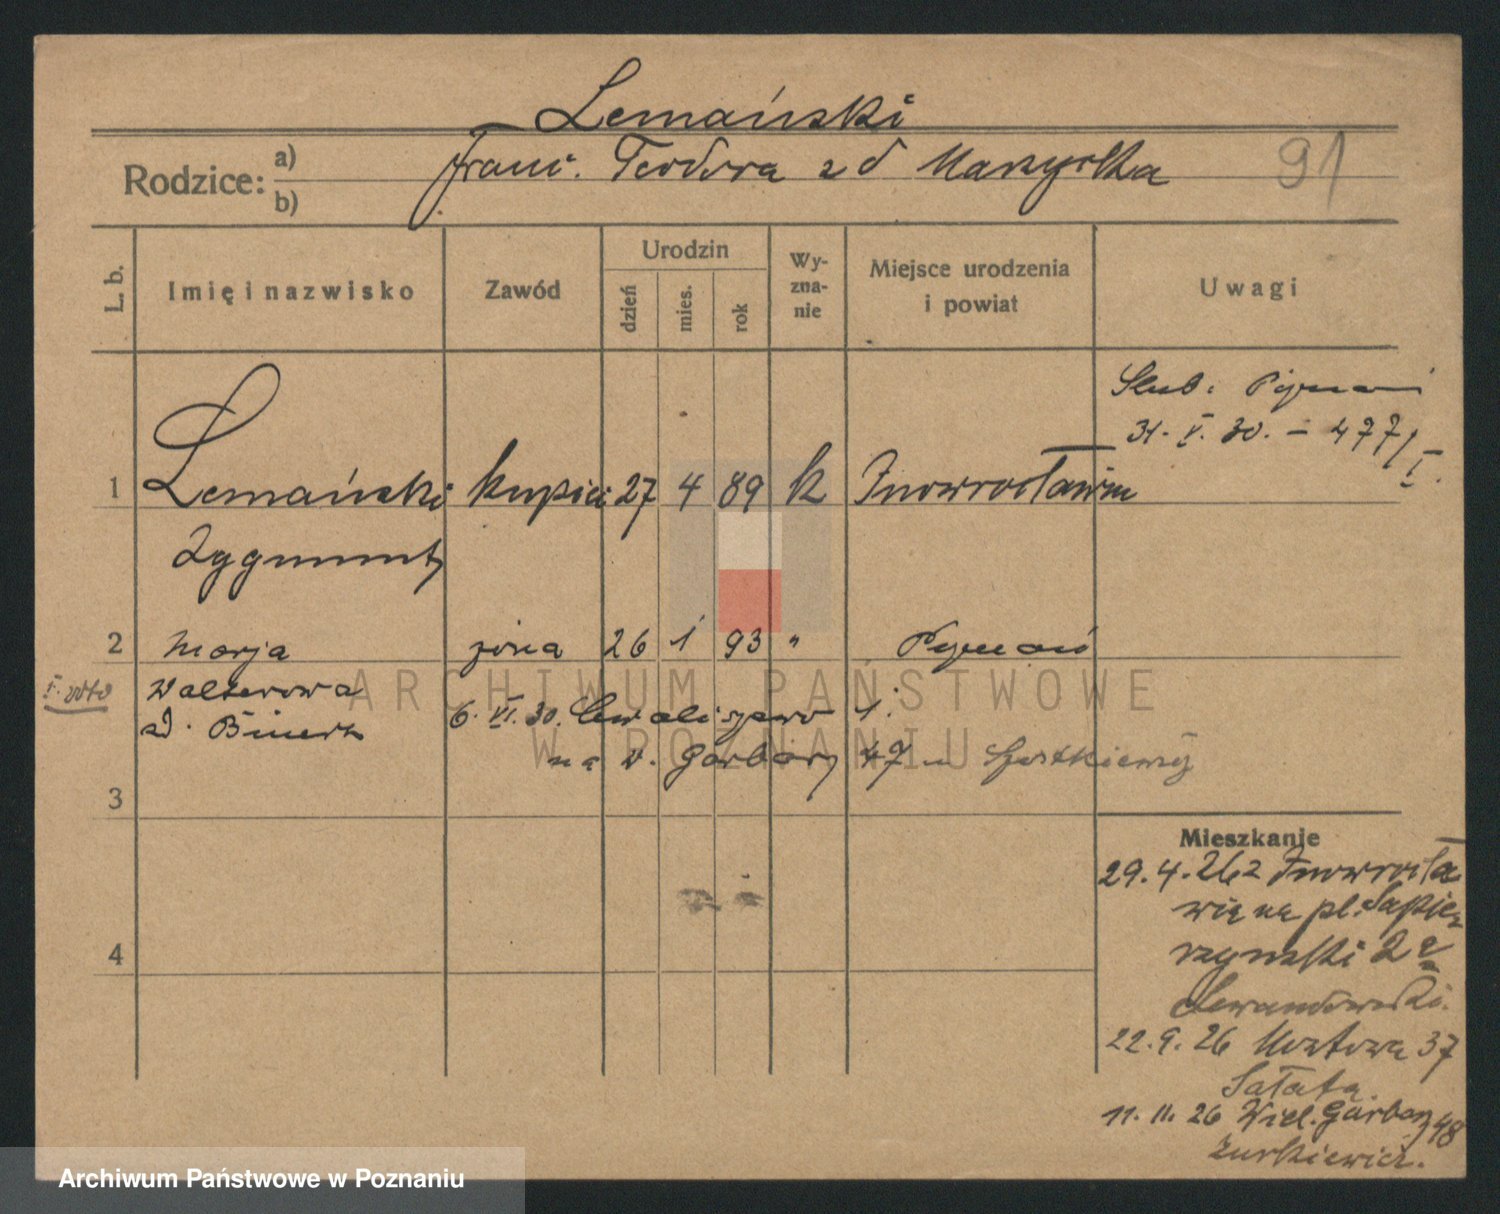 Lemański
Rodzice: a) Franc. Teodora z d
b)
91
L. b.
Imię i nazwisko
Zawód
Urodzin
dzień
mies.
rok
Wy-
zna-
nie
Miejsce urodzenia
i powiat
Uwagi
Ślub: Poznań
31. V. 30. – 477/I.
1 Lemański kupiec 27 4 89 k Inowrocławiu
Zygmunt
2 Marja żona 26 1 93 " Poznań
I. voto Walterowa
6. VI. 30. Chwaliszewo 1.
na W. Garbary 47
3
4
Mieszkanie
29.4.26 z Inowrocła
wia na pl. Sapie
żyński 2a
Lewandowski.
22.9.26 Mostowa 37
Sałata.
11. 11. 26 Wiel. Garbary 48
Żurkiewicz.
ARCHIWUM PAŃSTWOWE
W POZNANIU
Archiwum Państwowe w Poznaniu